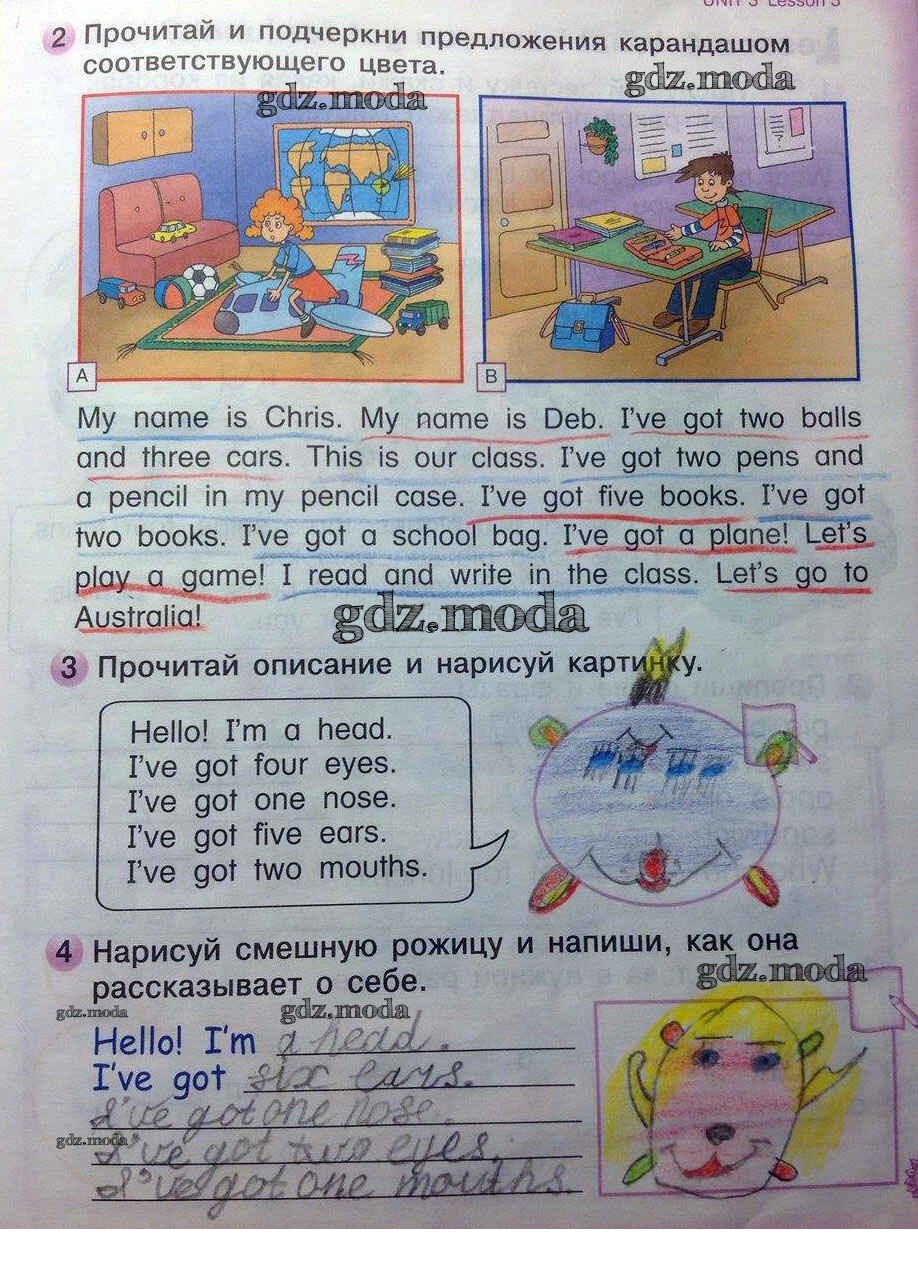 UNIT 3 Lesson 3
2 Прочитай и подчеркни предложения карандашом
соответствующего цвета.
gdz.moda
gdz.moda
A
B
My name is Chris. My name is Deb. I've got two balls
and three cars. This is our class. I've got two pens and
a pencil in my pencil case. I've got five books. I've got
two books. I've got a school bag. I've got a plane! Let's
play a game! I read and write in the class. Let's go to
Australia!
gdz.moda
3 Прочитай описание и нарисуй картинку.
Hello! I'm a head.
I've got four eyes.
I've got one nose.
I've got five ears.
I've got two mouths.
4 Нарисуй смешную рожицу и напиши, как она
рассказывает о себе.
gdz.moda
gdz.moda
gdz.moda
Hello! I'm a head.
I've got six ears.
I've got one nose.
gdz.moda
I've got two eyes.
I've got one mouths.